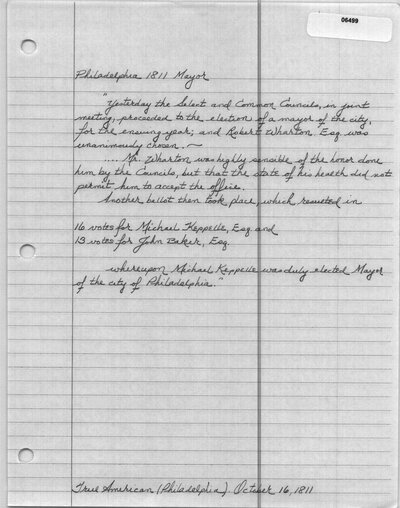 06499
Philadelphia 1811 Mayor
"Yesterday the Select and Common Councils, in joint
meeting, proceeded to the election of a mayor of the city,
for the ensuing year; and Robert Wharton, Esq. was
unanimously chosen. ~
.... Mr. Wharton was highly sensible of the honor done
him by the Councils, but that the state of his health did not
permit him to accept the office.
Another ballot then took place, which resulted in
16 votes for Michael Keppelle, Esq. and
13 votes for John Baker, Esq.
whereupon Michael Keppelle was duly elected Mayor
of the city of Philadelphia."
True American (Philadelphia). October 16, 1811